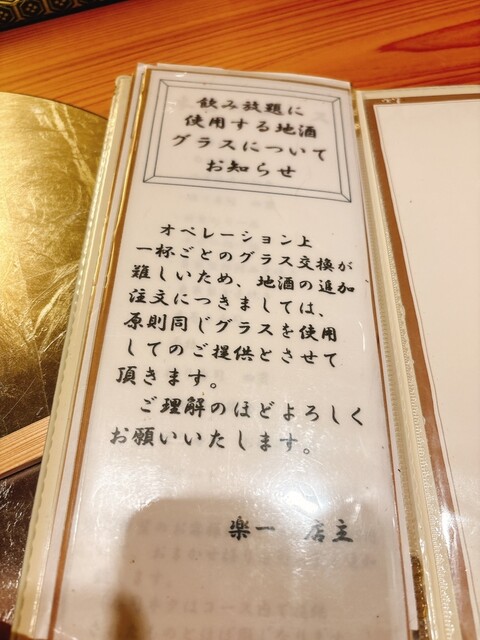 飲み放題に
使用する地酒
グラスについて
お知らせ
オペレーション上
一杯ごとのグラス交換が
難しいため、地酒の追加
注文につきましては、
原則同じグラスを使用
してのご提供とさせて
頂きます。
ご理解のほどよろしく
お願いいたします。
楽一 店主